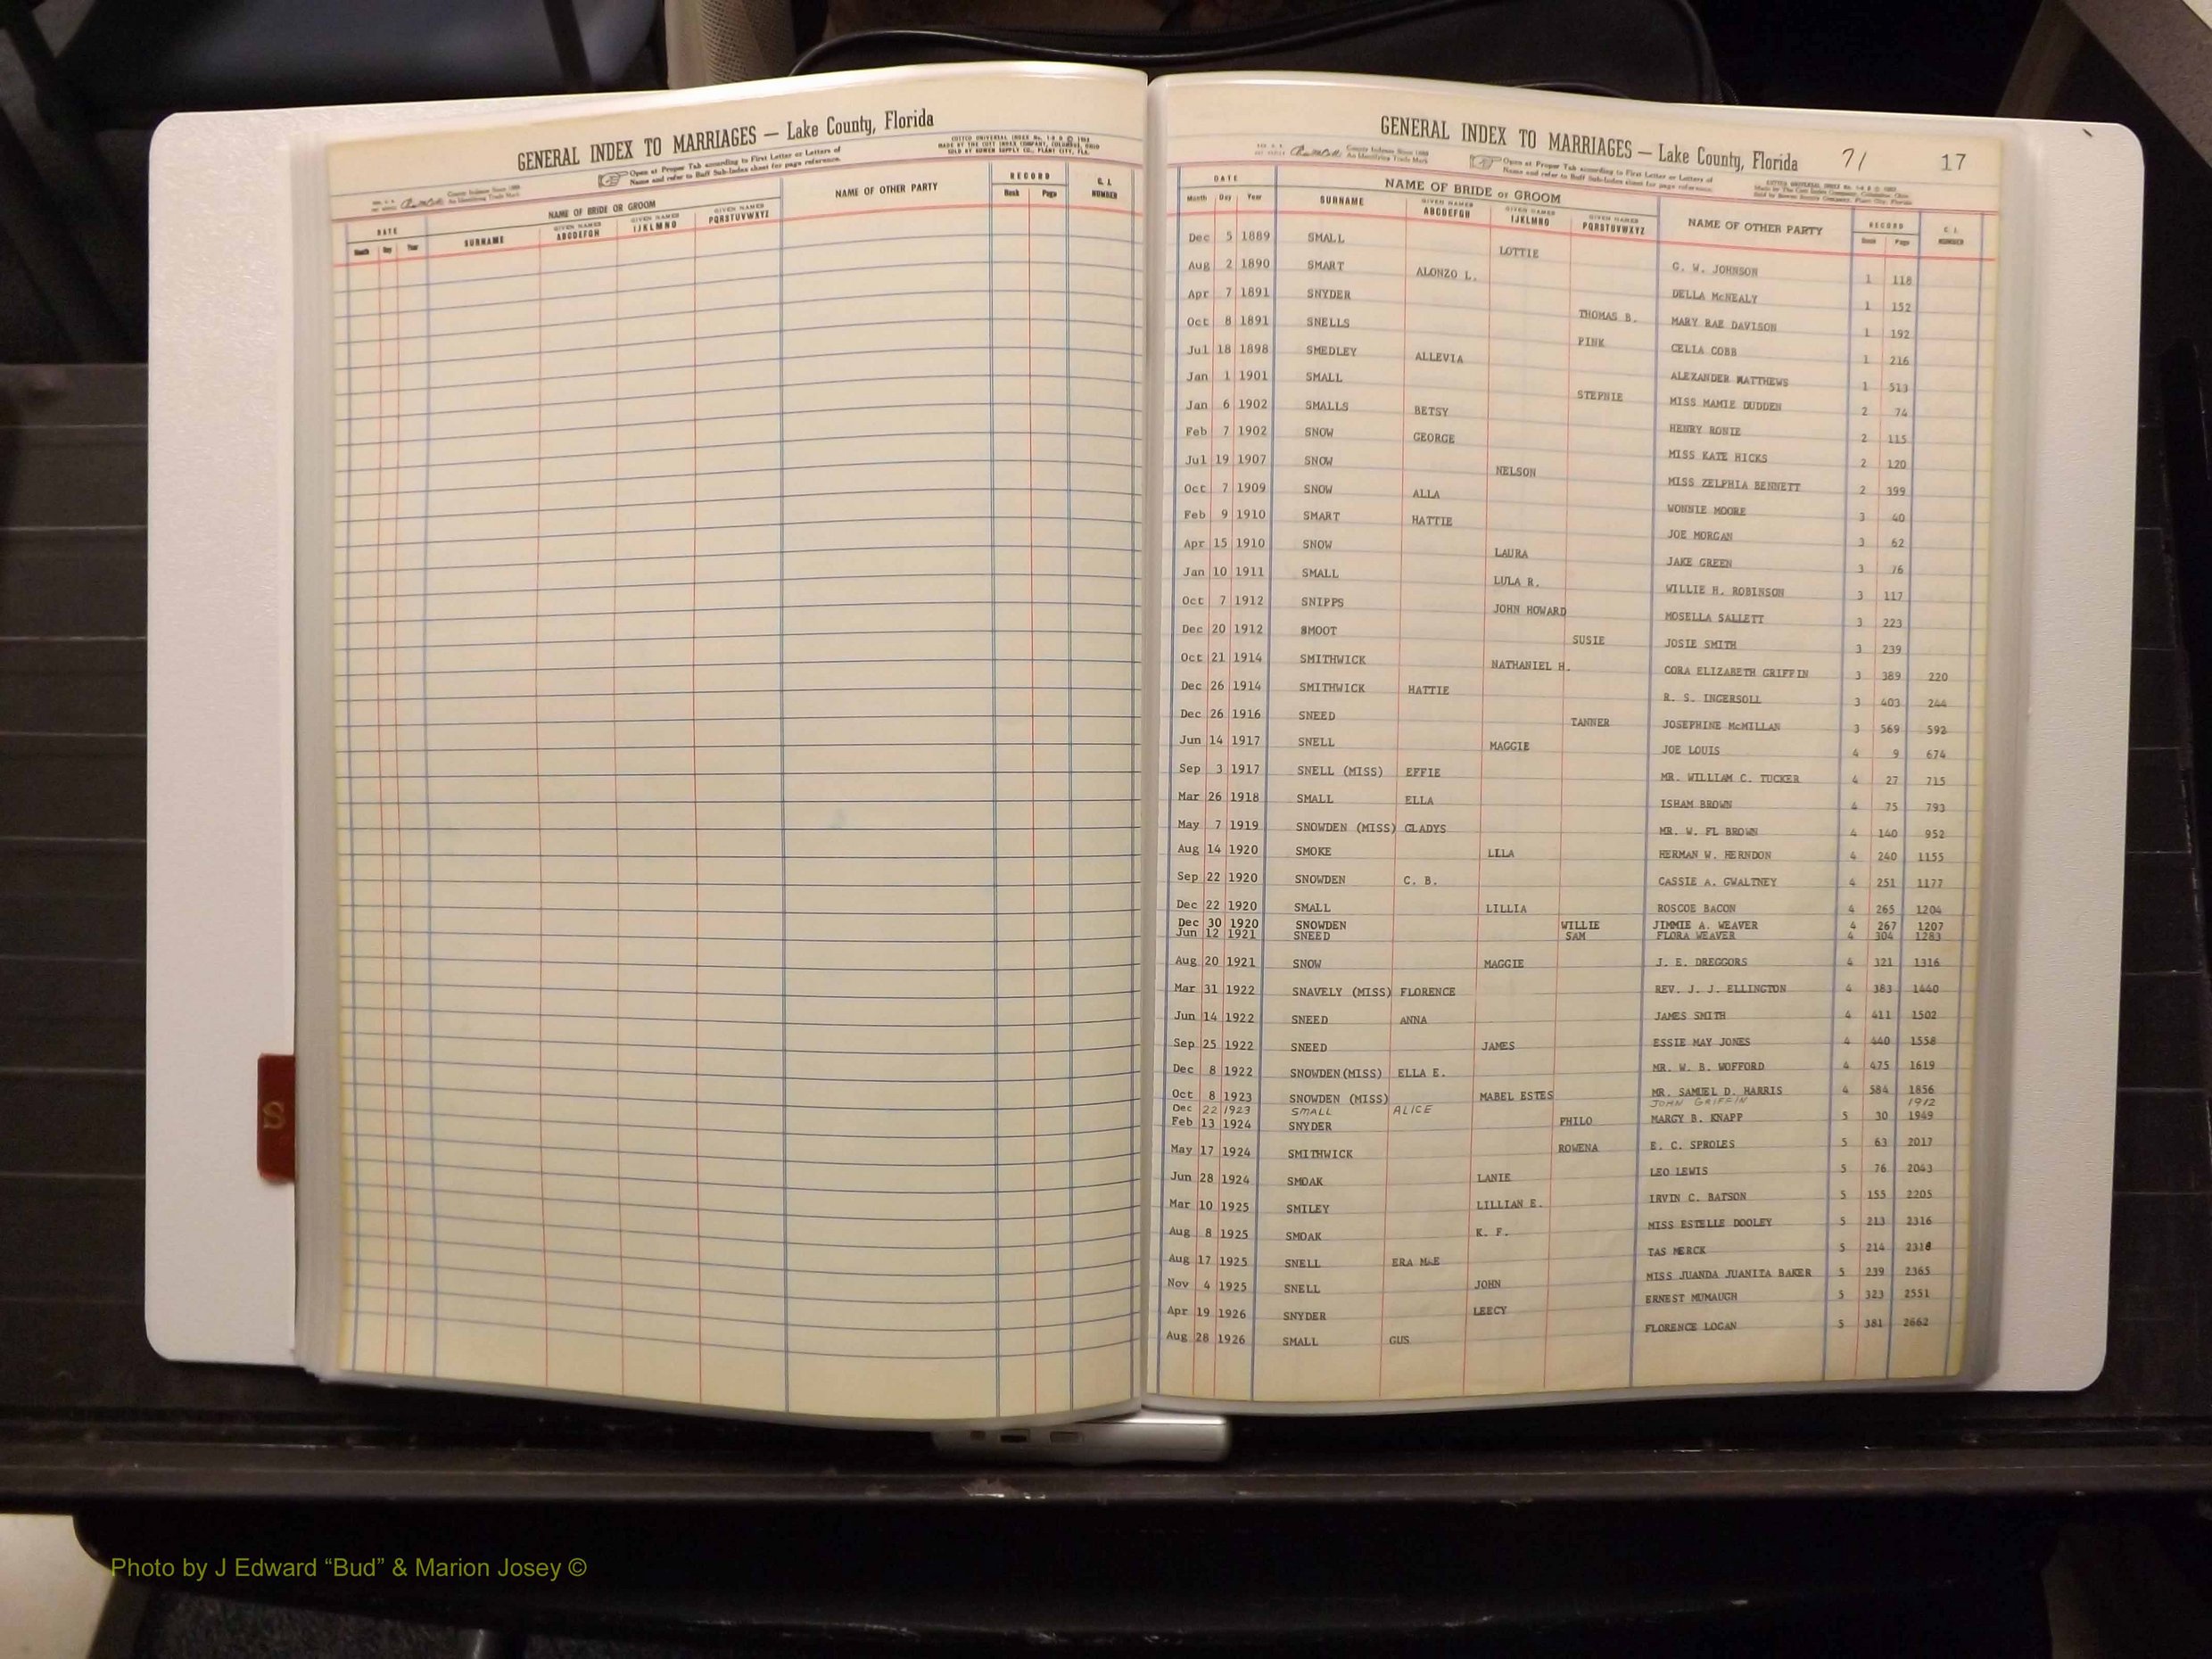 GENERAL INDEX TO MARRIAGES — Lake County, Florida
Open at Proper Tab according to First Letter or Letters of
Name and refer to Buff Sub-Index sheet for page reference.
DATE NAME OF BRIDE OR GROOM NAME OF OTHER PARTY RECORD C. I. NUMBER
Month Day Year SURNAME GIVEN NAMES ABCDEFGH GIVEN NAMES IJKLMNO GIVEN NAMES PQRSTUVWXYZ Book Page
GENERAL INDEX TO MARRIAGES — Lake County, Florida 71 17
Open at Proper Tab according to First Letter or Letters of
Name and refer to Buff Sub-Index sheet for page reference.
DATE NAME OF BRIDE or GROOM NAME OF OTHER PARTY RECORD C. I. NUMBER
Month Day Year SURNAME GIVEN NAMES ABCDEFGH GIVEN NAMES IJKLMNO GIVEN NAMES PQRSTUVWXYZ Book Page
Dec 5 1889 SMALL LOTTIE G. W. JOHNSON 1 118
Aug 2 1890 SMART ALONZO L. DELLA McNEALY 1 152
Apr 7 1891 SNYDER THOMAS B. MARY RAE DAVISON 1 192
Oct 8 1891 SNELLS PINK CELIA COBB 1 216
Jul 18 1898 SMEDLEY ALLEVIA ALEXANDER MATTHEWS 1 513
Jan 1 1901 SMALL STEPNIE MISS MAMIE DUDDEN 2 74
Jan 6 1902 SMALLS BETSY HENRY RONIE 2 115
Feb 7 1902 SNOW GEORGE MISS KATE HICKS 2 120
Jul 19 1907 SNOW NELSON MISS ZELPHIA BENNETT 2 399
Oct 7 1909 SNOW ALLA WONNIE MOORE 3 40
Feb 9 1910 SMART HATTIE JOE MORGAN 3 62
Apr 15 1910 SNOW LAURA JAKE GREEN 3 76
Jan 10 1911 SMALL LULA R. WILLIE H. ROBINSON 3 117
Oct 7 1912 SNIPPS JOHN HOWARD MOSELLA SALLETT 3 223
Dec 20 1912 SMOOT SUSIE JOSIE SMITH 3 239
Oct 21 1914 SMITHWICK NATHANIEL H. CORA ELIZABETH GRIFFIN 3 389 220
Dec 26 1914 SMITHWICK HATTIE R. S. INGERSOLL 3 403 244
Dec 26 1916 SNEED TANNER JOSEPHINE McMILLAN 3 569 592
Jun 14 1917 SNELL MAGGIE JOE LOUIS 4 9 674
Sep 3 1917 SNELL (MISS) EFFIE MR. WILLIAM C. TUCKER 4 27 715
Mar 26 1918 SMALL ELLA ISHAM BROWN 4 75 793
May 7 1919 SNOWDEN (MISS) GLADYS MR. W. FL BROWN 4 140 952
Aug 14 1920 SMOKE LELA HERMAN W. HERNDON 4 240 1155
Sep 22 1920 SNOWDEN C. B. CASSIE A. GWALTNEY 4 251 1177
Dec 22 1920 SMALL LILLIA ROSCOE BACON 4 265 1204
Dec 30 1920 SNOWDEN WILLIE JIMMIE A. WEAVER 4 267 1207
Jun 12 1921 SNEED SAM FLORA WEAVER 4 304 1283
Aug 20 1921 SNOW MAGGIE J. E. DREGGORS 4 321 1316
Mar 31 1922 SNAVELY (MISS) FLORENCE REV. J. J. ELLINGTON 4 383 1440
Jun 14 1922 SNEED ANNA JAMES SMITH 4 411 1502
Sep 25 1922 SNEED JAMES ESSIE MAY JONES 4 440 1558
Dec 8 1922 SNOWDEN (MISS) ELLA E. MR. W. B. WOFFORD 4 475 1619
Oct 8 1923 SNOWDEN (MISS) MABEL ESTES MR. SAMUEL D. HARRIS 4 584 1856
Dec 22 1923 SMALL ALICE JOHN GRIFFIN 1912
Feb 13 1924 SNYDER PHILO MARGY B. KNAPP 5 30 1949
May 17 1924 SMITHWICK ROWENA E. C. SPROLES 5 63 2017
Jun 28 1924 SMOAK LANIE LEO LEWIS 5 76 2043
Mar 10 1925 SMILEY LILLIAN E. IRVIN C. BATSON 5 155 2205
Aug 8 1925 SMOAK K. F. MISS ESTELLE DOOLEY 5 213 2316
Aug 17 1925 SNELL ERA MAE TAS MERCK 5 214 2318
Nov 4 1925 SNELL JOHN MISS JUANDA JUANITA BAKER 5 239 2365
Apr 19 1926 SNYDER LEECY ERNEST MUMAUGH 5 323 2551
Aug 28 1926 SMALL GUS FLORENCE LOGAN 5 381 2662
S
Photo by J Edward “Bud” & Marion Josey ©